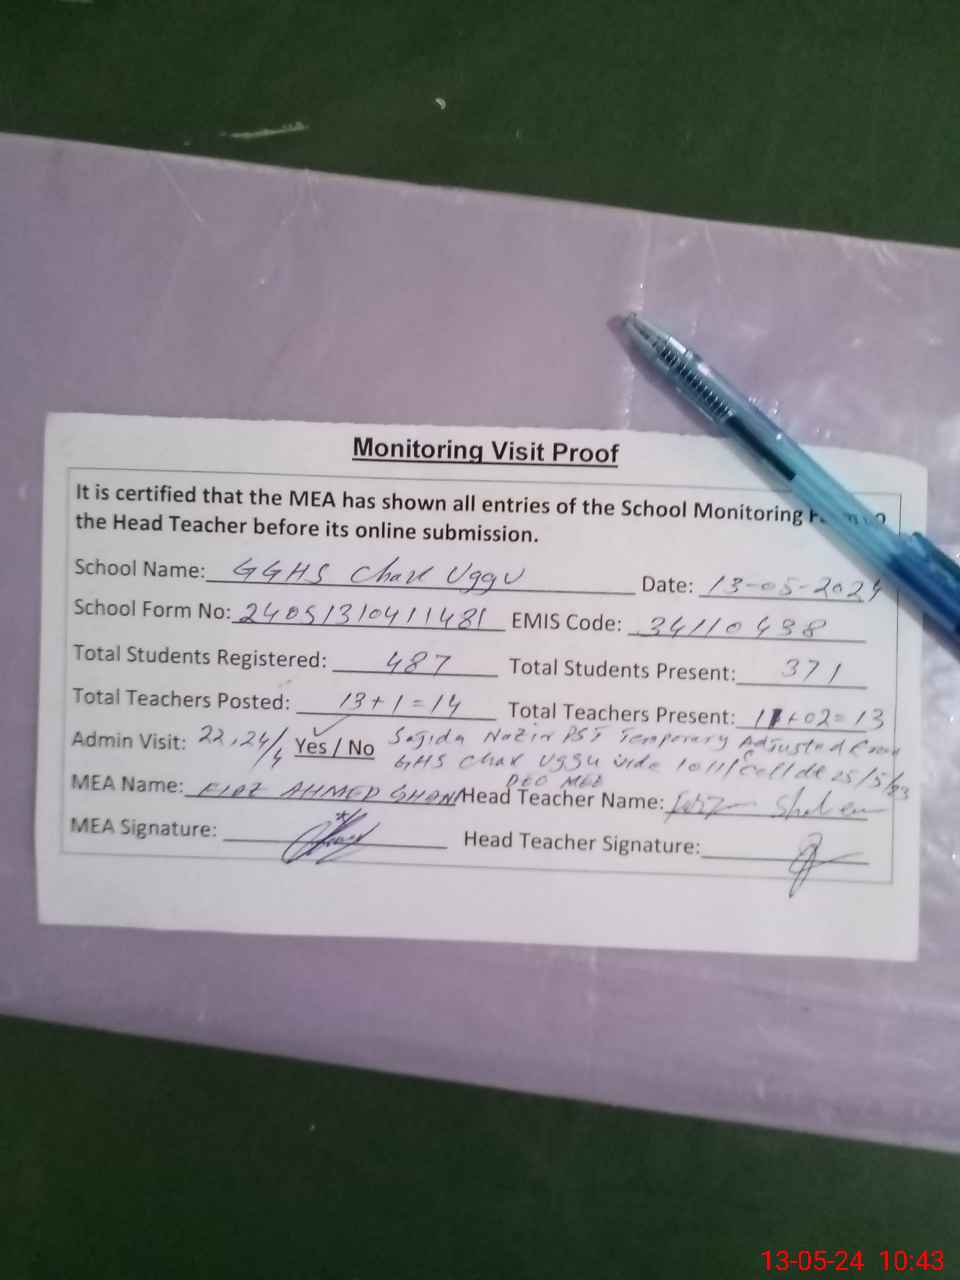 Monitoring Visit Proof
It is certified that the MEA has shown all entries of the School Monitoring
the Head Teacher before its online submission.
School Name: GGHS Chak Uggu Date: 13-05-2024
School Form No: 24051310411481 EMIS Code: 34110438
Total Students Registered: 487 Total Students Present: 371
Total Teachers Posted: 13+1=14 Total Teachers Present: 11+02=13
Admin Visit: 22,24/4 Yes / No Sajida Nazir PST Temporary Adjusted from
GHS Chak Uggu vide 1011/Cell dt 25/5/23
DEO MEE
MEA Name: FIAZ AHMED GHANI Head Teacher Name: Shaheen
MEA Signature: Head Teacher Signature:
13-05-24 10:43